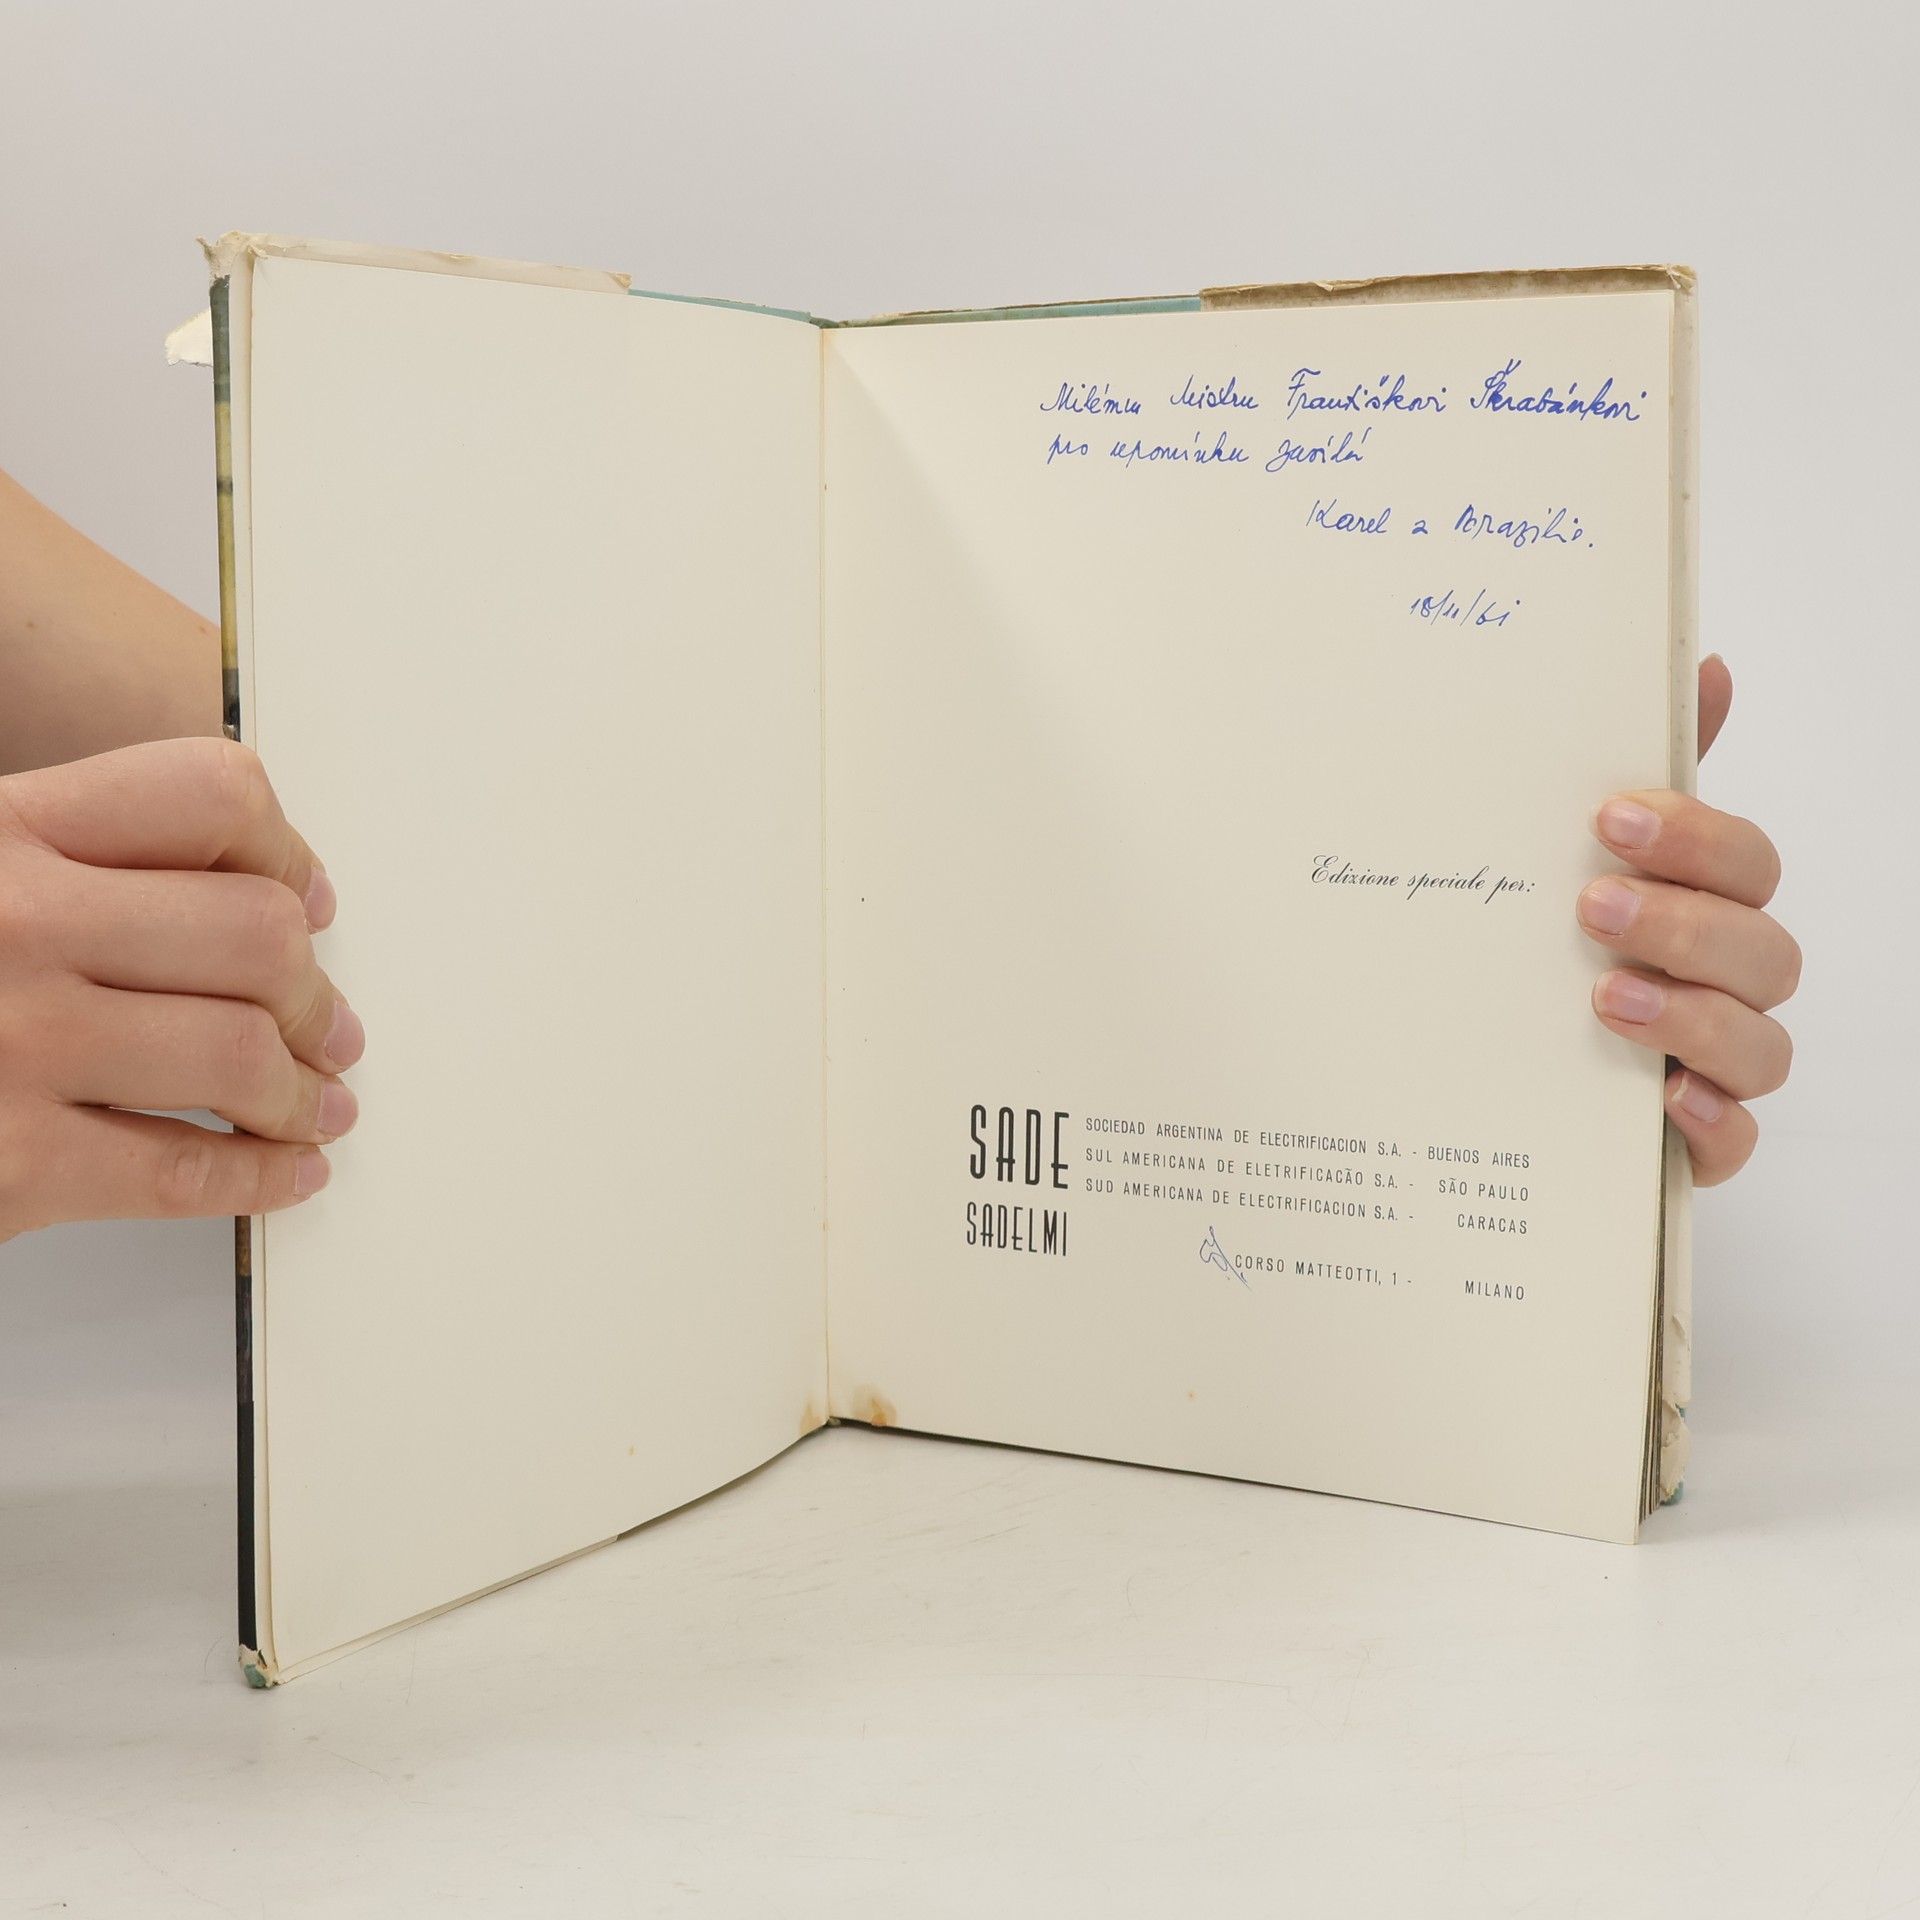 Milému Mistru Františkovi Škrabánkovi
pro upomínku zasílá
Karel z Brazilie.
18/11/61
Edizione speciale per:
SADE
SOCIEDAD ARGENTINA DE ELECTRIFICACION S.A. - BUENOS AIRES
SUL AMERICANA DE ELETRIFICAÇÃO S.A. - SÃO PAULO
SUD AMERICANA DE ELECTRIFICACION S.A. - CARACAS
SADELMI
CORSO MATTEOTTI, 1 - MILANO